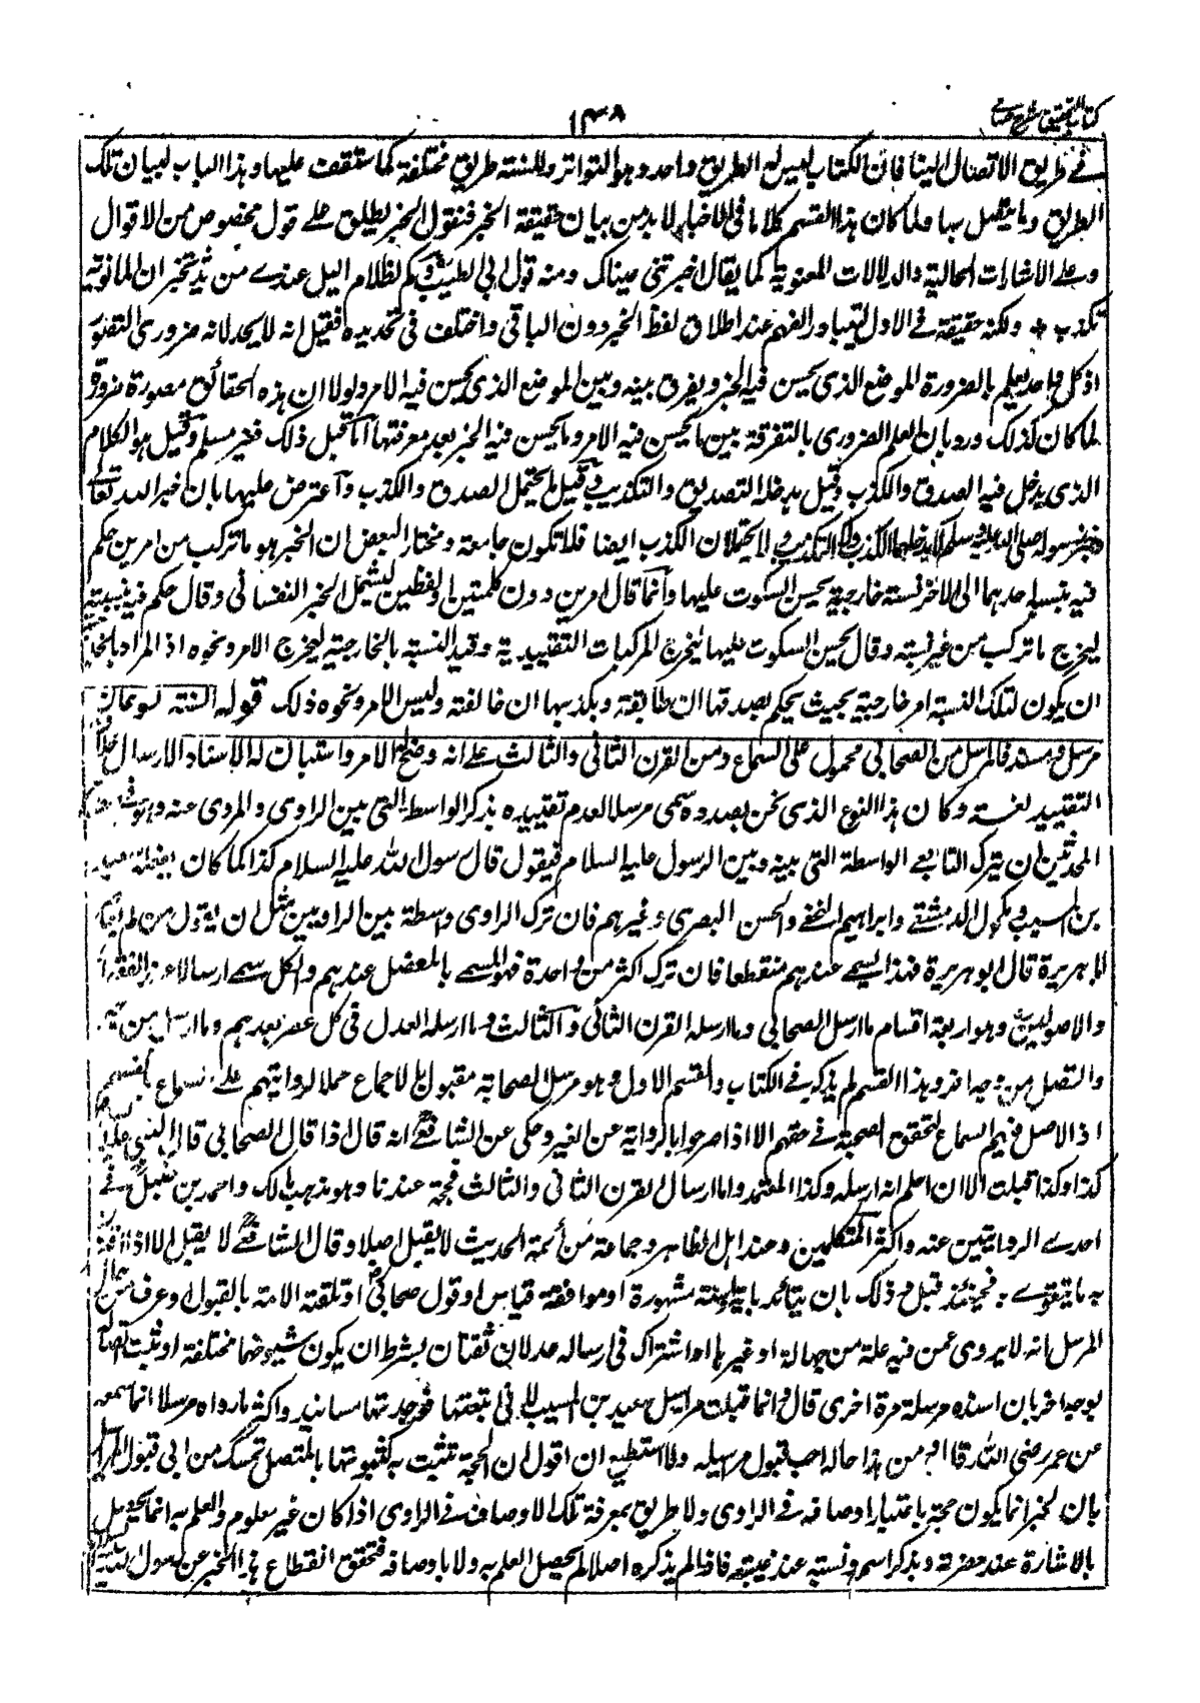 كتاب التحقيق شرح حسامى
١٣٨
فے طريق الاتصال الينا فان الكتاب ليس له الطريق واحد وهو التواتر وللسنة طريق مختلفة كما ستقف عليها وهذا الباب لبيان تلك
الطريق وما يتصل بها ولما كان هذا القسم كلاما فى الاخبار لا بد من بيان حقيقة الخبر فنقول الخبر يطلق علے قول مخصوص من الاقوال
وعلے الاشارات الحالية والدلالات المعنوية كما يقال اخبرتنى عيناك ومنه قول ابى الطيب وكم لظلام اليل عندے من يد تخبر ان المانوية
تكذب + ولكنه حقيقة فے الاول لتبادر الفهم عند اطلاق لفظ الخبر دون الباقى واختلف فى تحديده فقيل انه لا يحد لانه ضرورى التصور
اذ كل واحد يعلم بالضرورة الموضع الذى يحسن فيه الخبر ويفرق بينه وبين الموضع الذى يحسن فيه الامر ولولا ان هذه الحقائق متصورة ضرورة
لما كان كذلك ورد بان العلم الضرورى بالتفرقة بين ما يحسن فيه الامر وما يحسن فيه الخبر بعد معرفتها اما قبل ذلك فغير مسلم وقيل هو الكلام
الذى يدخل فيه الصدق والكذب وقيل يدخله التصديق والتكذيب وقيل ما يحتمل الصدق والكذب واعترض عليها بان خبر الله تعالى
وخبر رسوله صلى الله عليه وسلم لا يدخلهما الكذب ولا التكذيب ولا يحتملان الكذب ايضا فلا تكون جامعة ومختار البعض ان الخبر هو ما تركب من امرين حكم
فيه بنسبة احدهما الى الاخر نسبة خارجية يحسن السكوت عليها وانما قال امرين دون كلمتين او لفظين ليشمل الخبر النفسانى وقال حكم فيه بنسبة
ليخرج ما تركب من غير نسبة وقال يحسن السكوت عليها ليخرج المركبات التقييدية وقيد النسبة بالخارجية ليخرج الامر ونحوه اذ المراد بالخارجية
ان يكون لتلك النسبة امر خارجية بحيث يحكم بصدقها ان طابقته وبكذبها ان خالفته وليس للامر ونحوه ذلك قوله السنة نوعان
مرسل ومسند فالمرسل من الصحابى محمول على السماع ومن القرن الثانى والثالث علے انه وضح له الامر واستبان له الاسناد الارسال خلاف
التقييد لغة وكان هذا النوع الذى نحن بصدده سمى مرسلا لعدم تقييده بذكر الواسطة التى بين الراوى والمروى عنه وهو فى
المحدثين ان يترك التابعے الواسطة التى بينه وبين الرسول عليه السلام فيقول قال رسول الله عليه السلام كذا كما كان يفعله سعيد
بن المسيب ومكحول الدمشقے وابراهيم النخعے والحسن البصرى وغيرهم فان ترك الراوى واسطة بين الراويين مثل ان يقول من لم
ابا هريرة قال ابو هريرة فهذا يسمے عندهم منقطعا فان ترك اكثر من واحدة فهو المسمے بالمعضل عندهم والكل يسمے ارسالا عند الفقهاء
والاصوليين وهو اربعة اقسام ما ارسل الصحابى وما ارسله القرن الثانى والثالث وما ارسله العدل فى كل عصر بعدهم وما ارسل من وجه
واتصل من وجه اخر وهذا القسم لم يذكر فے الكتاب والقسم الاول وهو مرسل الصحابة مقبول بالاجماع حملا لروايتهم علے السماع بانفسهم
اذ الاصل فيهم السماع لتحقق الصحبة فے حقهم الا اذا صرحوا بالرواية عن الغير وحكى عن الشافعےؒ انه قال اذا قال الصحابى قال النبى عليه
كذا وكذا قبلت الا ان اعلم انه ارسله وكذا المعتمد واما ارسال القرن الثانى والثالث فحجة عندنا وهو مذهب مالك واحمد بن حنبل فے
احدے الروايتين عنه واكثر المتكلمين وعند اهل الظاهر وجماعة من أئمة الحديث لا يقبل اصلا وقال الشافعےؒ لا يقبل الا اذا اقترن
به ما يتقوے به فحينئذ قبل وذلك بان يتأيد باية او سنة مشهورة او موافقة قياس او قول صحابى او تلقته الامة بالقبول او عرف من حال
المرسل انه لا يروى عمن فيه علة من جهالة او غيرها او اشتراك فى ارساله عدلان ثقتان بشرط ان يكون شيوخهما مختلفة او ثبت اتصاله
بوجه اخر بان اسنده مرسله مرة اخرى قال وانما قبلت مراسيل سعيد بن المسيب لانى تتبعتها فوجدتها مسانيد واكثر ما رواه مرسلا انما سمعه
عن عمر رضى الله قال ومن هذا حاله احب قبول مراسيله ولا استطيع ان اقول ان الحجة تثبت به كثبوتها بالمتصل تمسك من ابى قبول المراسيل
بان الخبر انما يكون حجة باعتبار اوصاف فے الراوى ولا طريق بمعرفة تلك الاوصاف فے الراوى اذا كان غير معلوم والعلم به انما يحصل
بالاشارة عند حضرته وبذكر اسمه ونسبته عند غيبته فاذا لم يذكره اصلا لم يحصل العلم به ولا باوصافه فتحقق انقطاع هذا الخبر عن رسول الله